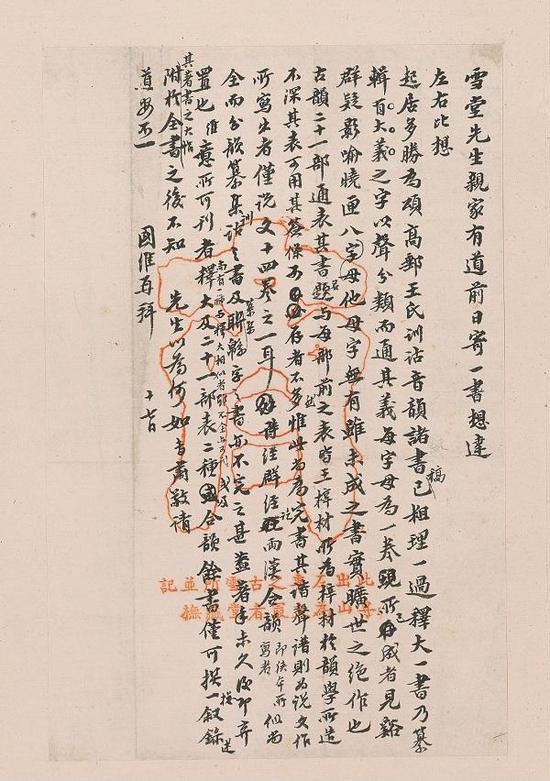 雪堂先生親家有道前日寄一書想達
左右比想
起居多勝為頌高郵王氏訓詁音韻諸書稿已粗理一過釋大一書乃纂
輯有大義之字以聲分類而通其義每字母為一卷現所已成者見谿
群疑影喻曉匣八字母他母字無有雖未成之書實曠世之絕作也
古韻二十一部通表其書題名與每部前之表皆王梓材所為梓材於韻學所造
不深其表可用其簽條不必存者亦多惟此尚為完書其諧聲譜則為說文作
所寫出者僅說文十四卷之一耳詩經群經兩漢合韻但尚
全而分韻纂集訓詁之書及聯緜字書亦不完之甚蓋者手未久後即棄
置也維意所可刊者釋大及二十一部表二種或合韻餘書僅可撰一敘錄述
其著書之大恉附於全書之後不知先生以為何如專肅敬請
道安不一
國維再拜 十七日